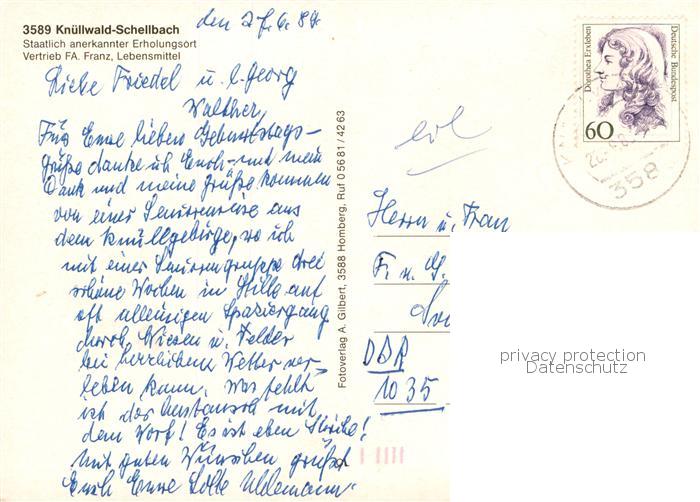 3589 Knüllwald-Schellbach
Staatlich anerkannter Erholungsort
Vertrieb FA. Franz, Lebensmittel
den 27.6.89
Liebe Friedel u. l. Georg
Walther,
Für Eure lieben Geburtstags-
grüße danke ich Euch – und mein
Dank und meine Grüße kommen
von einer Seniorenreise aus
dem Knüllgebirge, wo ich
mit einer Seniorengruppe drei
schöne Wochen in Stille auf
oft alleinigen Spaziergang
durch Wiesen u. Felder
bei herrlichem Wetter ver-
leben kann. Was fehlt
ich der Austausch mit
dem Wort! Es ist eben Stille!
Mit guten Wünschen grüßt
Euch Eure Lotte Uhlemann
Fotoverlag A. Gilbert, 3588 Homberg, Ruf 0 56 81 / 42 63
Dorothea Erxleben
Deutsche Bundespost
60
358
Herrn u. Frau
F. u. G.
DDR
1035
privacy protection
Datenschutz